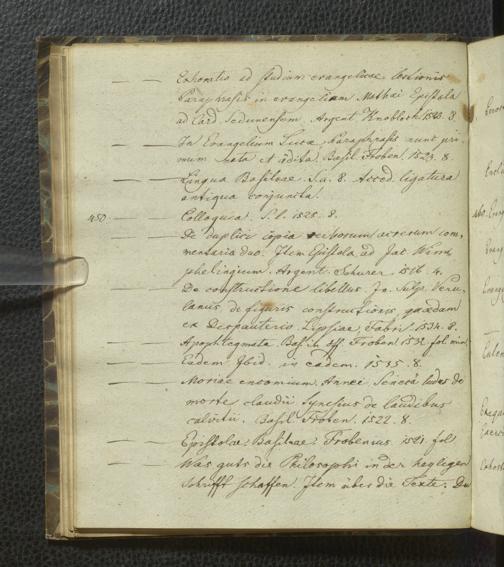 — — Exhoratio ad studium evangelicae lectionis
Paraphrasis in evangelium Mathai Epistola
ad Card. Sedunensem. Argent. Knobloch 1523. 8.
— — In Evangelium Lucae Paraphrasis nunc pri-
mum nata et edita. Basil. Froben. 1523. 8.
— — Lingua Basileae. S. a. 8. Acced. ligatura
antiqua conjuncta.
450 — Colloquia. S. l. 1525. 8.
— — De duplici copia verborum ac rerum com-
mentaria duo. Item Epistola ad Jac. Wim-
phelingium. Argent. Schurer. 1516. 4.
— — De constructione libellus. Jo. Sulp. Veru-
lanus de figuris constructionis, quaedam
ex Despauterio. Lipsiae, Fabri. 1534. 8.
— — Apophtegmata. Basil. in off. Froben. 1532. fol. min.
— — Eadem. Ibid. in eadem. 1535. 8.
— — Moriae encomium. Annaei Senecae ludus de
morte claudii Synesius de laudibus
calvitii. Basil. Froben. 1522. 8.
— — Epistolae. Basileae: Frobenius. 1521. fol.
— — Was guts die Philosophi in der heyligen
Schrifft schaffen. Item über die Texte: Du